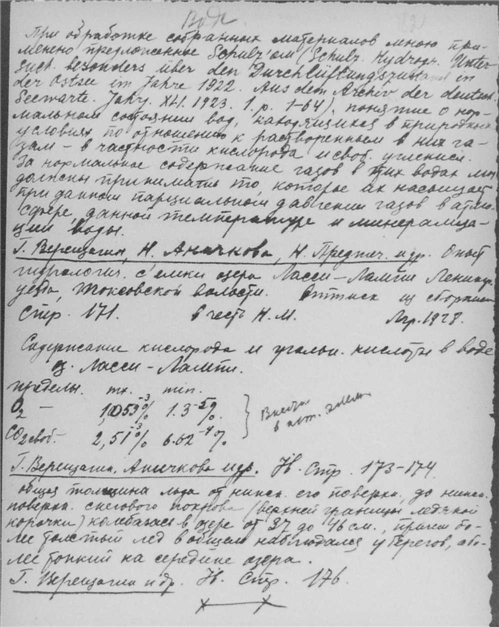 Воде
При обработке собранных материалов мною при-
менено предложенные Schulz'ом (Schulz. Hydrogr. Unter-
such. besonders über den Durchlüftungszustand in
der Ostsee im Jahre 1922. Aus dem Archiv der deutsch.
Seewarte. Jahrg. XLI. 1923. 1. p. 1-64), понятие о нор-
мальном состоянии вод, находящихся в природных
условиях по отношению к растворенным в них га-
зам - в частности кислорода и своб. углекисл.
За нормальное содержание газов в этих водах мы
должны принимать то, которое их насыщает
при данном парциальном давлении газов в атмо-
сфере, данной температуре и минерализа-
ции воды.
Г. Верещагин, Н. Аничкова, Н. Предтеч. и др. Опыт
гидрологич. съемки озера Ласси-Лампи Ленингр.
уезда, Токсовской волости. Оттиск из сборника
Стр. 171. в честь Н. М. Лгр. 1927.
Содержание кислорода и угольн. кислоты в воде
оз. Ласси-Лампи.
пределы. max. min.
O2 - 1,053-3% 1.3-5%
CO2 своб.- 2,51-3% 6.62-4%
Г. Верещагин, Аничкова и др. Id. Стр. 173-174.
общая толщина льда от нижн. его поверхн. до нижн.
поверхн. снегового покрова (верхней границы ледяной
корочки) колебалась в озере от 37 до 46 см., причем бо-
лее толстый лед в общем наблюдался у берегов, а бо-
лее тонкий на середине озера.
Г. Верещагин и др. Id. Стр. 176.